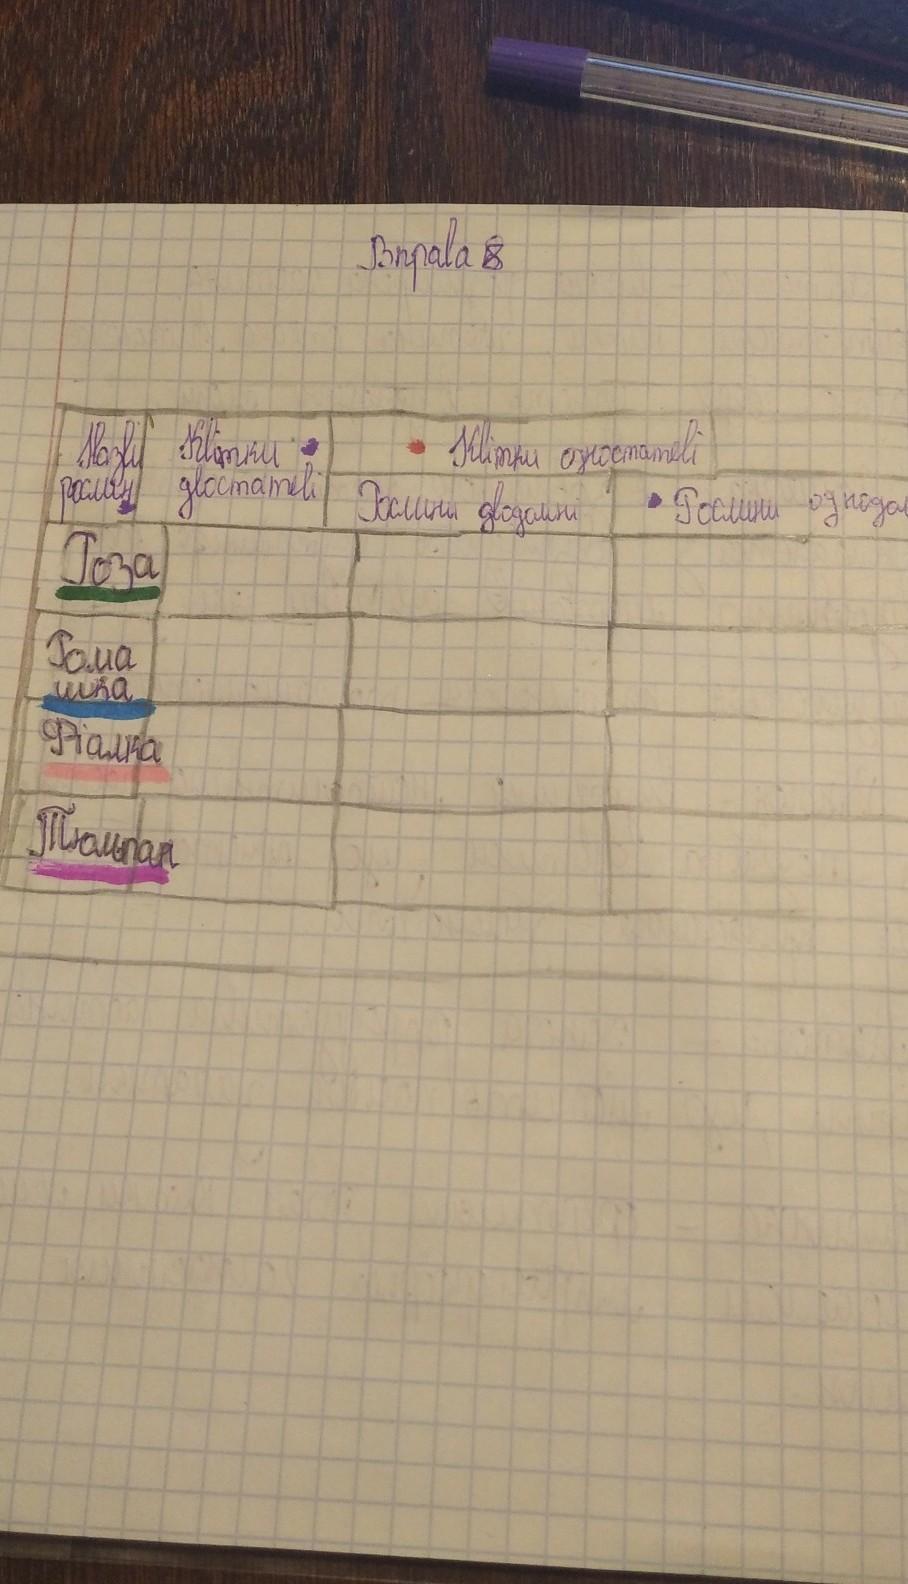 Вправа 8
Назви
рослин
Квітки
двостатеві
Квітки одностатеві
Рослини дводомні
Рослини однодом
Роза
Рома
шка
Фіалка
Тюльпан